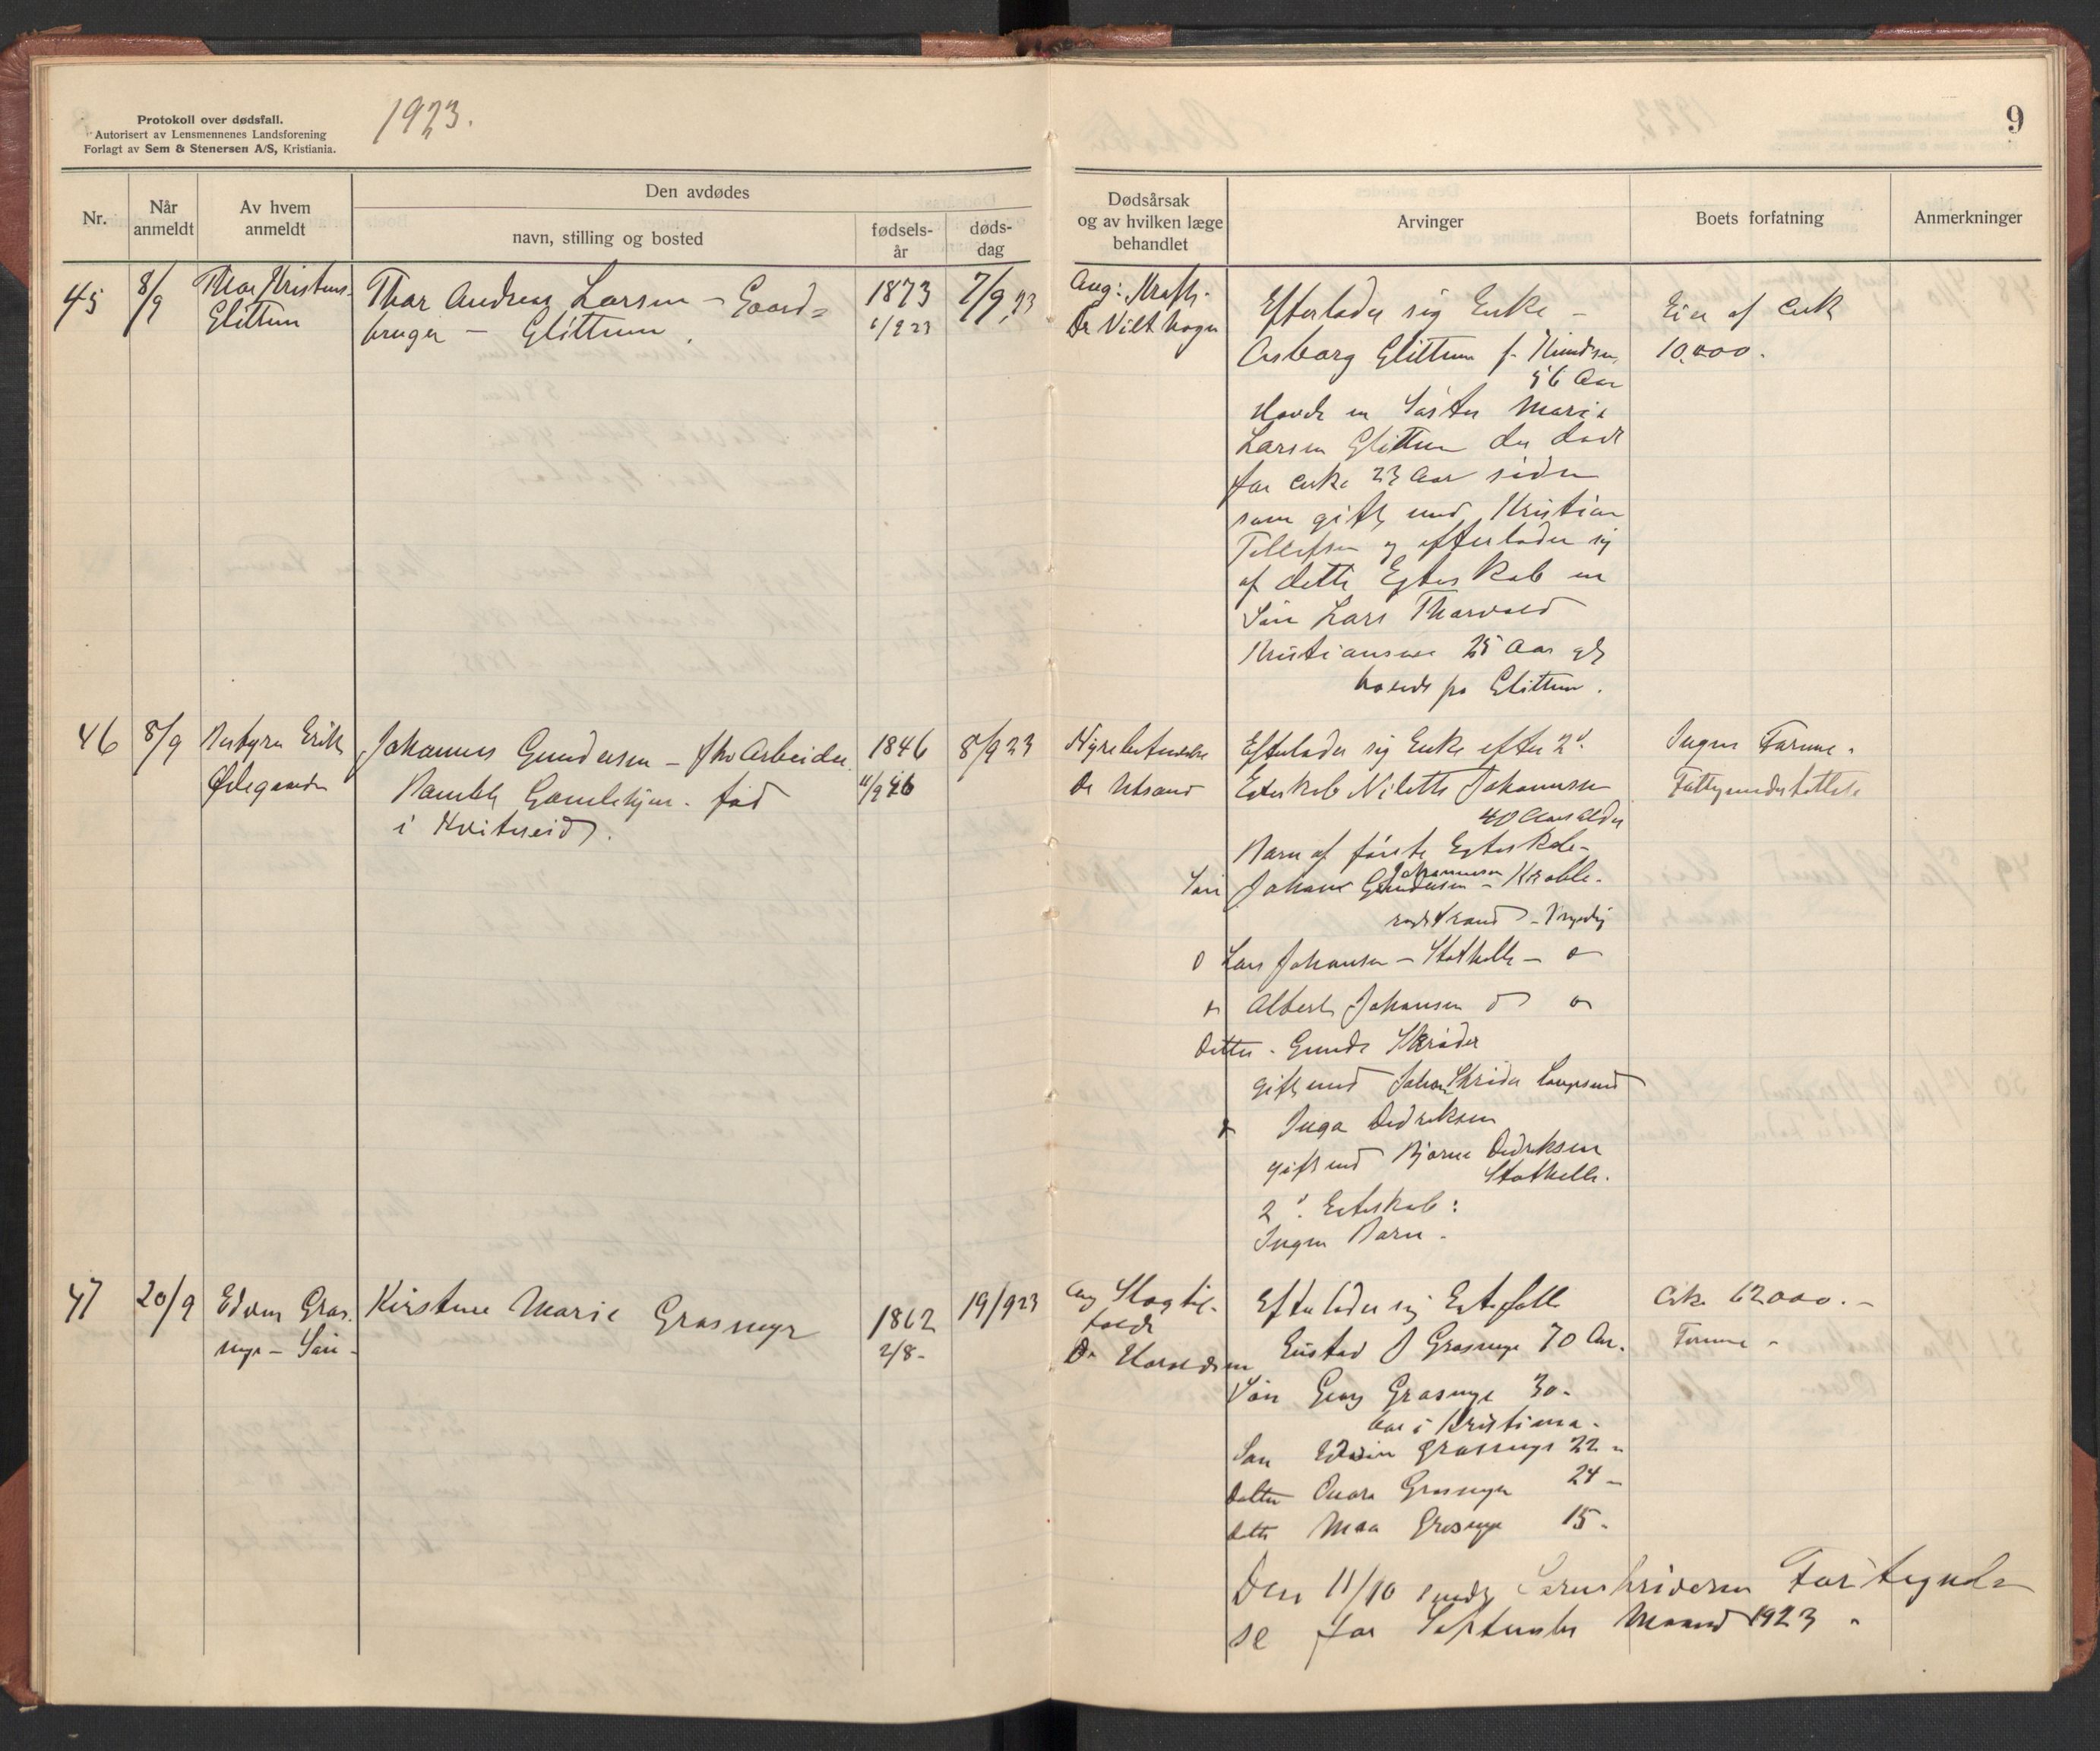 Protokoll over dødsfall.
Autorisert av Lensmennenes Landsforening
Forlagt av Sem & Stenersen A/S, Kristiania.
1923.
9
Nr.
Når anmeldt
Av hvem anmeldt
Den avdødes
navn, stilling og bosted
fødsels-år
døds-dag
Dødsårsak
og av hvilken læge
behandlet
Arvinger
Boets forfatning
Anmerkninger
45
8/9
Thor Kristens.
Glittum
Thor Andreas Larsen – Gaard=
bruger – Glittum.
1873
7/9 23
Aug: Kræft.
Dr
Efterlader sig Enke –
Asborg Glittum f. Knudsen
56 Aar
Havde en Søster Marie
Larsen Glittum der døde
for cirka 23 Aar siden
som gift med Kristian
Tellefsen og efterlader sig
af dette Egteskab en
Søn Lars Thorvald
Kristiansen 25 Aar gl
boende på Glittum.
Eier af cirk
10,000.
46
8/9
Bestyrer Erik
Ødegaarden
Johannes Gundersen – fhv Arbeider
Bamble Gamlehjem. født
i Kviteseid.
1846
11/9 46
8/9 23
Nyrebetændelse
Dr Utsand
Efterlader sig Enke efter 2d
Egteskab Nilette Johannesen
40 Aars Alder
Barn af første Egteskab –
Søn Johans Gundersen Johannesen – Krable.
rødstrand – Myndig
o Lars Johansen – Stathelle – o
Albert Johansen
Datter – Gunda Skrider
gift med Johan Skrider Langesund
Inga Dedreksen
gift med Bjarne Dedreksen
Stathelle.
2d Egteskab:
Ingen Barn.
Ingen Formue.
Fattigunderstøttelse
47
20/9
Edvin Gras.
myr – Søn –
Kirstine Marie Grasmyr
1862
2/8 –
19/9 23
Aug Slagtil-
fælde
Dr
Efterlader sig Egtefælle
Gustav J Grasmyr 70 Aar.
Søn Georg Grasmyr 30 –
bor i Kristiania –
Søn Edvin Grasmyr 22 –
Datter Grasmyr 24 –
Datter Grasmyr 15 –
Cirka 12000. –
Formue –
Den 11/10 sendt Sorenskriveren Fortegnel=
se for September Maaned 1923